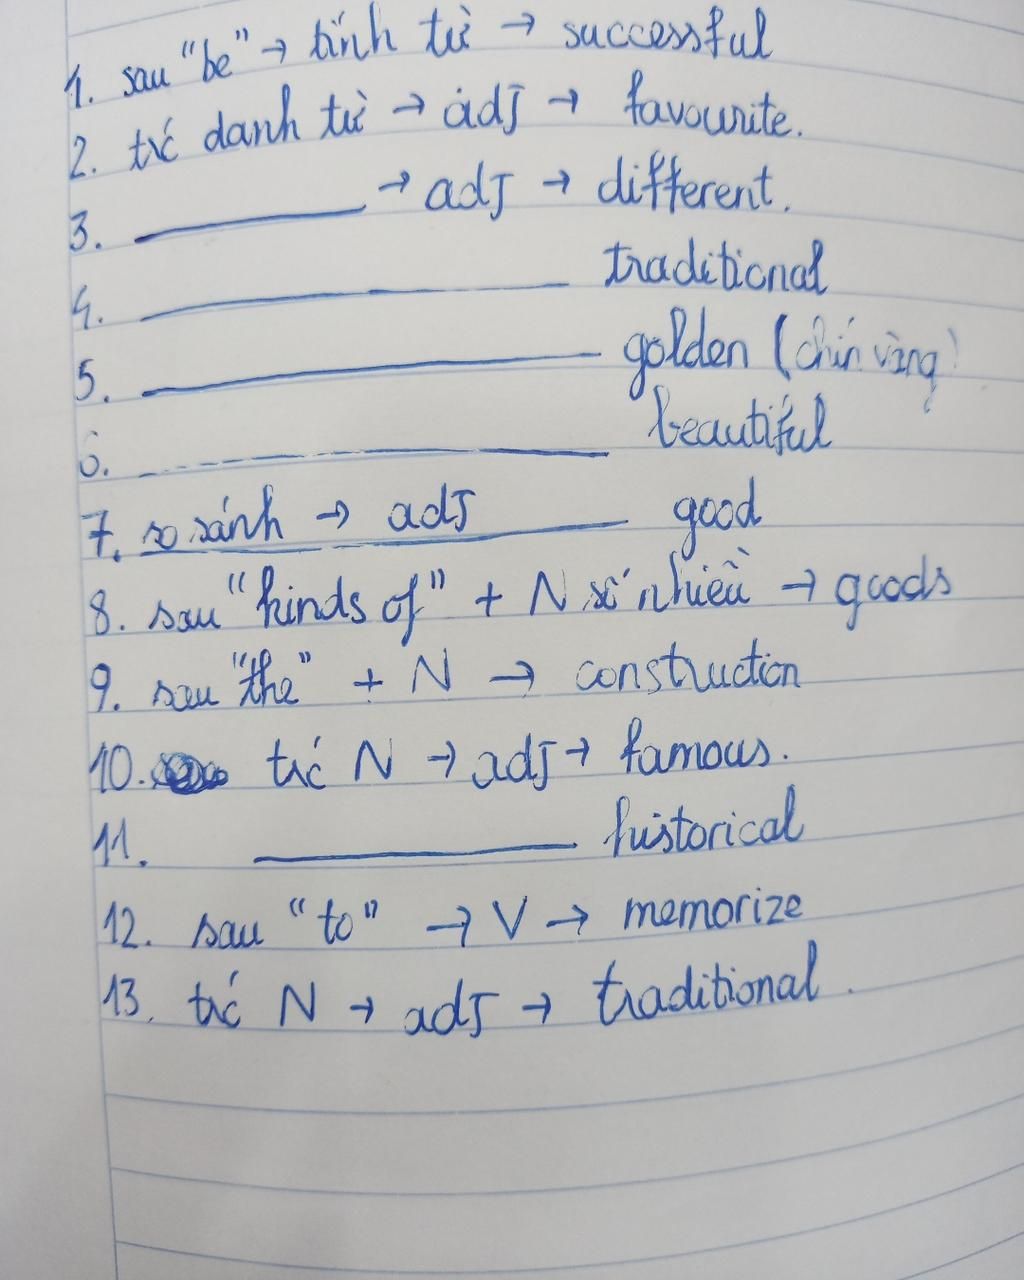 1. sau "be" → tính từ → successful
2. trc danh từ → adj → favourite.
3. → adj → different.
4. traditional
5. golden (chín vàng)
6. beautiful
7. so sánh → adj good
8. sau "kinds of" + N số nhiều → goods
9. sau "the" + N → construction
10. trc N → adj → famous.
11. historical
12. sau "to" → V → memorize
13. trc N → adj → traditional.